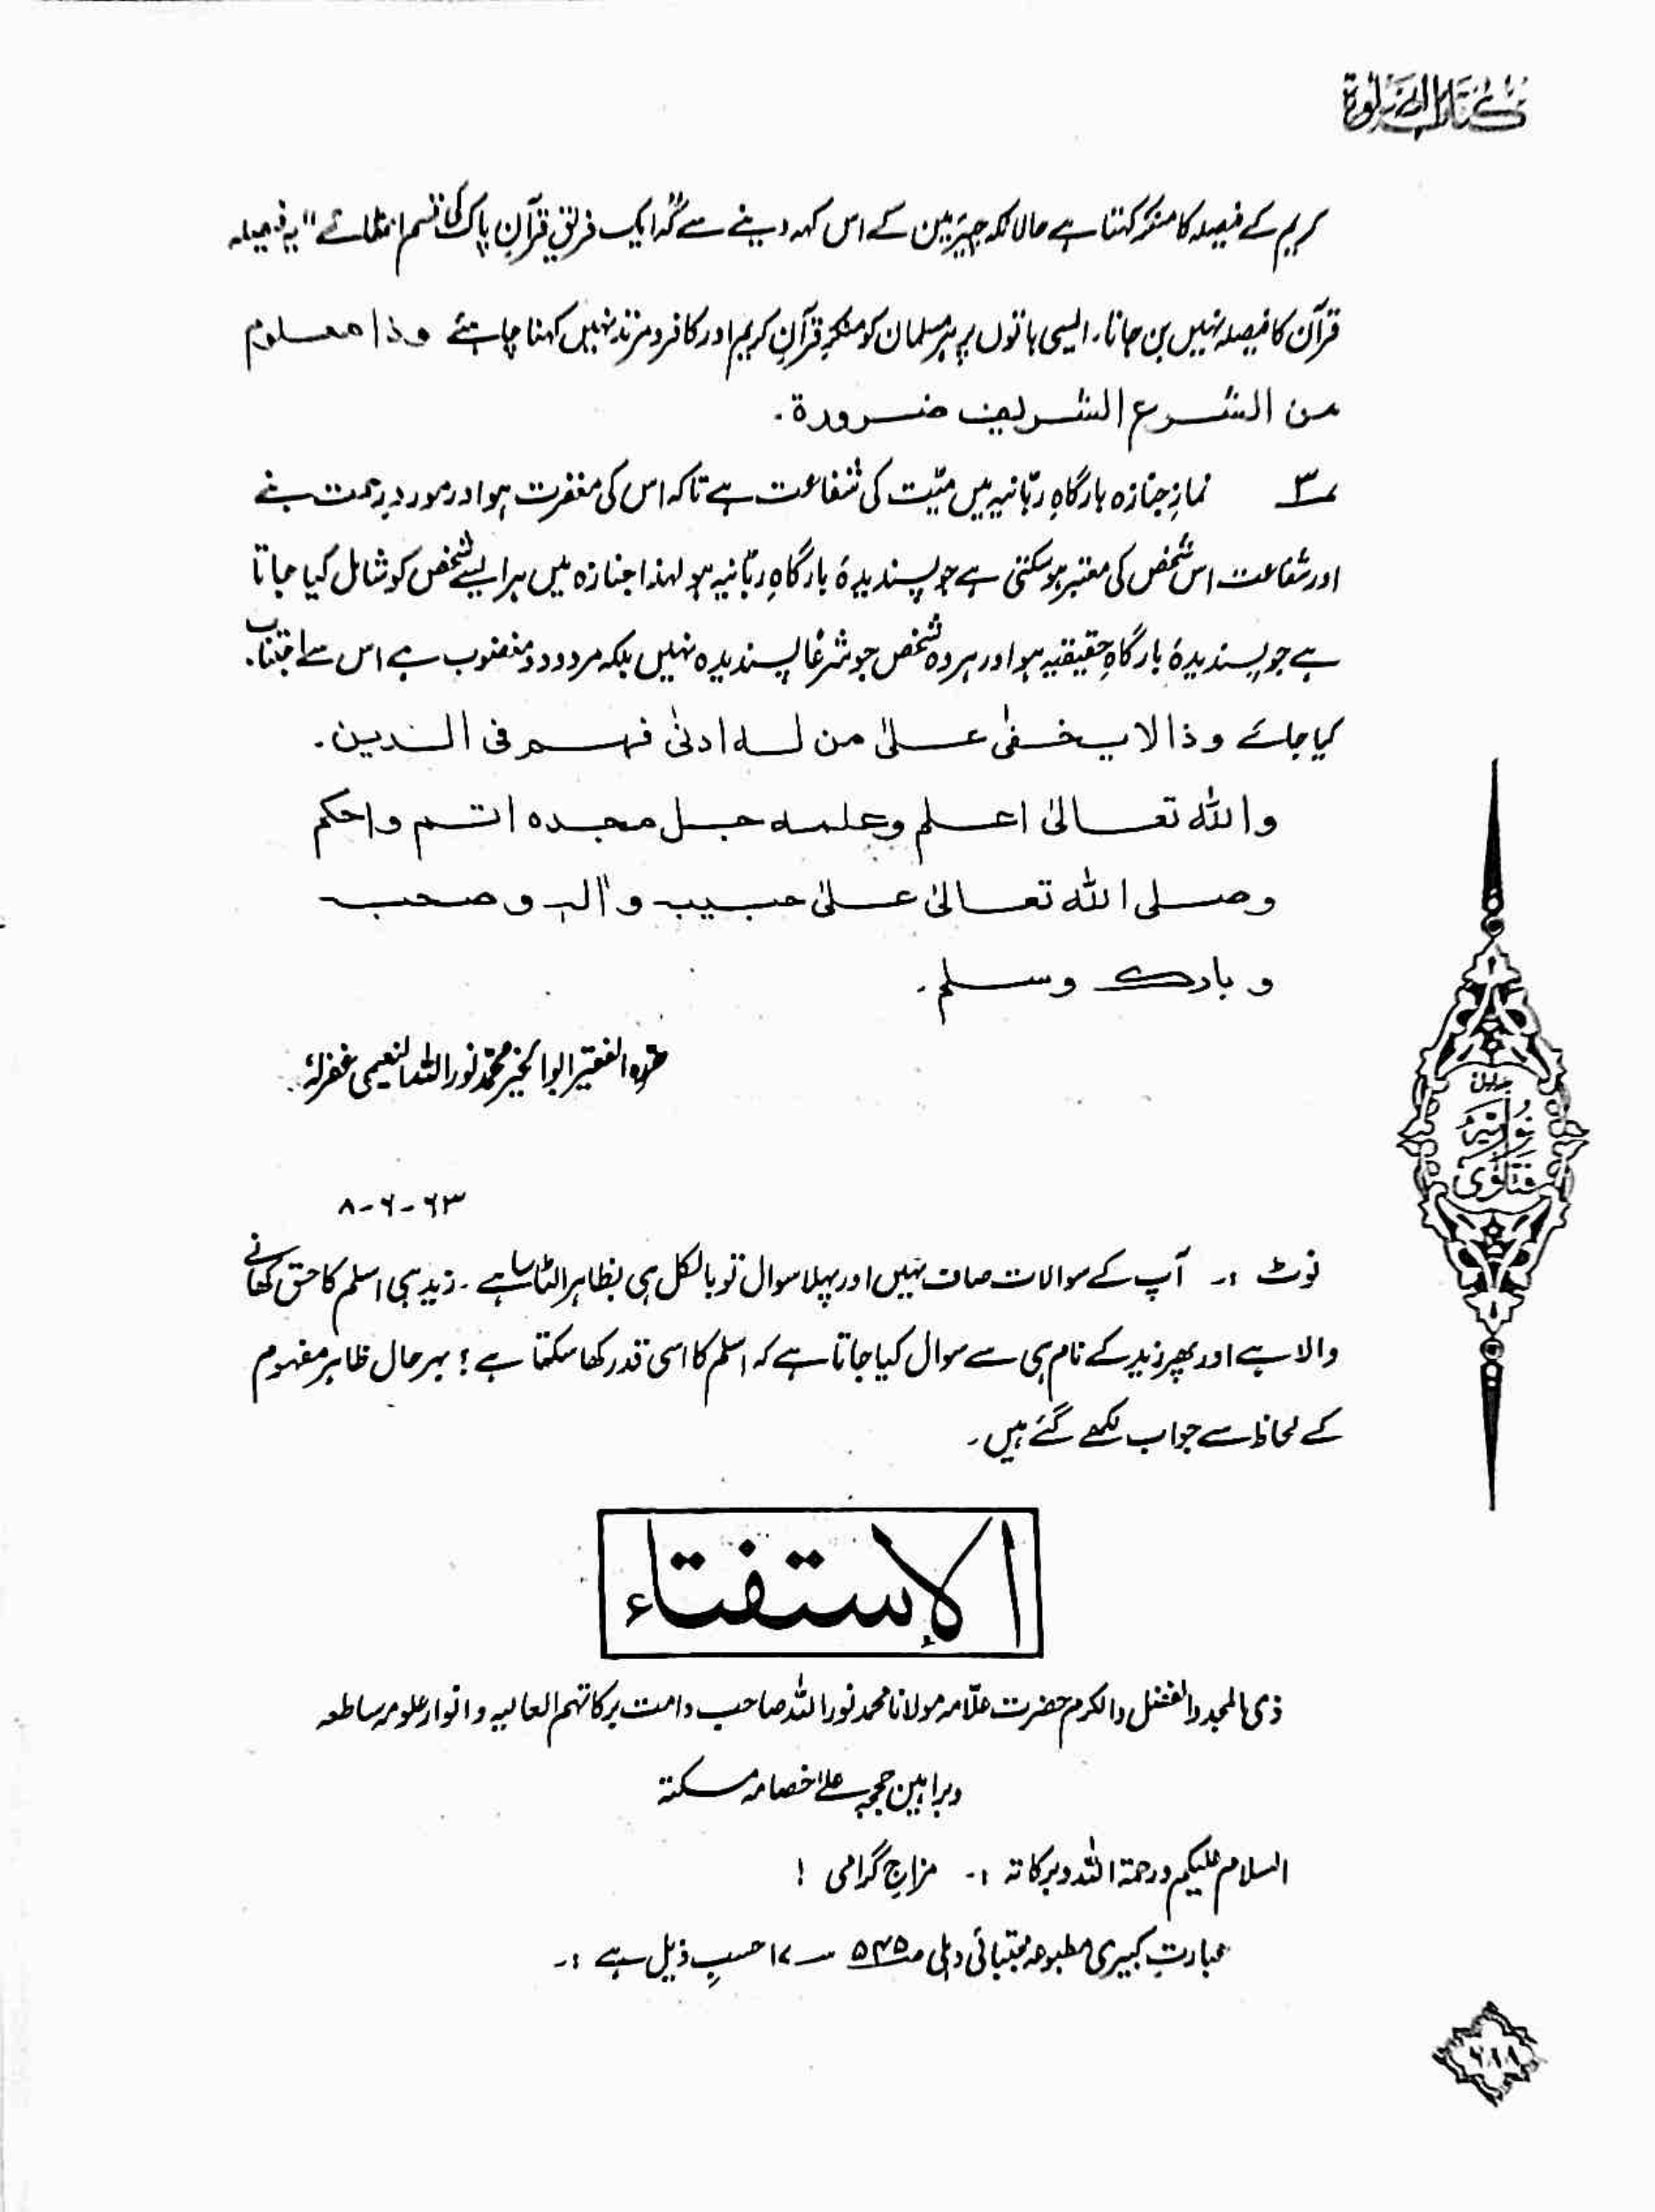 كتاب الصلوة
کریم کے فیصلہ کا منکر کہتا ہے حالانکہ چیئرمین کے اس کہہ دینے سے کہ "ایک فریق قرآنِ پاک کی قسم اٹھائے" یہ فیصلہ
قرآن کا فیصلہ نہیں بن جاتا، ایسی باتوں پر ہر مسلمان کو منکرِ قرآنِ کریم اور کافر و مرتد نہیں کہنا چاہئے وذا معلوم
من الشرع الشریف ضرورة۔
۳ نمازِ جنازہ بارگاہِ ربّانیہ میں میّت کی شفاعت ہے تاکہ اس کی مغفرت ہو اور موردِ رحمت بنے
اور شفاعت اس شخص کی معتبر ہو سکتی ہے جو پسندیدۂ بارگاہِ ربّانیہ ہو لہٰذا جنازہ میں ہر ایسے شخص کو شامل کیا جاتا
ہے جو پسندیدۂ بارگاہِ حقیقیہ ہو اور ہر وہ شخص جو شرعًا پسندیدہ نہیں بلکہ مردود و مغضوب ہے اس سے اجتناب
کیا جائے وذا لا یخفٰی علیٰ من له ادنیٰ فهم فی الدین۔
والله تعالیٰ اعلم وعلمه جل مجده اتم واحکم
وصلی الله تعالیٰ علیٰ حبیبہ واٰلہ وصحبہ
وبارک وسلم۔
حرّرہ الفقیر ابوالخیر محمّد نور اللہ النعیمی غفرلہٗ
۸-۶-۶۳
نوٹ :۔ آپ کے سوالات صاف نہیں اور پہلا سوال تو بالکل ہی بظاہر الٹا سا ہے۔ زید ہی اسلم کا حق کھانے
والا ہے اور پھر زید کے نام ہی سے سوال کیا جاتا ہے کہ اسلم کا اسی قدر کھا سکتا ہے؟ بہرحال ظاہر مفہوم
کے لحاظ سے جواب لکھے گئے ہیں۔
جلد
نُورِیَّہ
فَتَاوٰی
الإستفتاء
ذی المجد والفضل والکرم حضرت علّامہ مولانا محمد نور اللہ صاحب دامت برکاتہم العالیہ و انوار علومہ ساطعہ
وبراہین حججہ علیٰ خصامہ مسکتہ
السلام علیکم ورحمۃ اللہ وبرکاتہ :۔ مزاجِ گرامی !
عبارتِ کبیری مطبوعہ مجتبائی دہلی صـ۵۴۵ سـ۱۷ حسبِ ذیل ہے :۔
۶۱۸